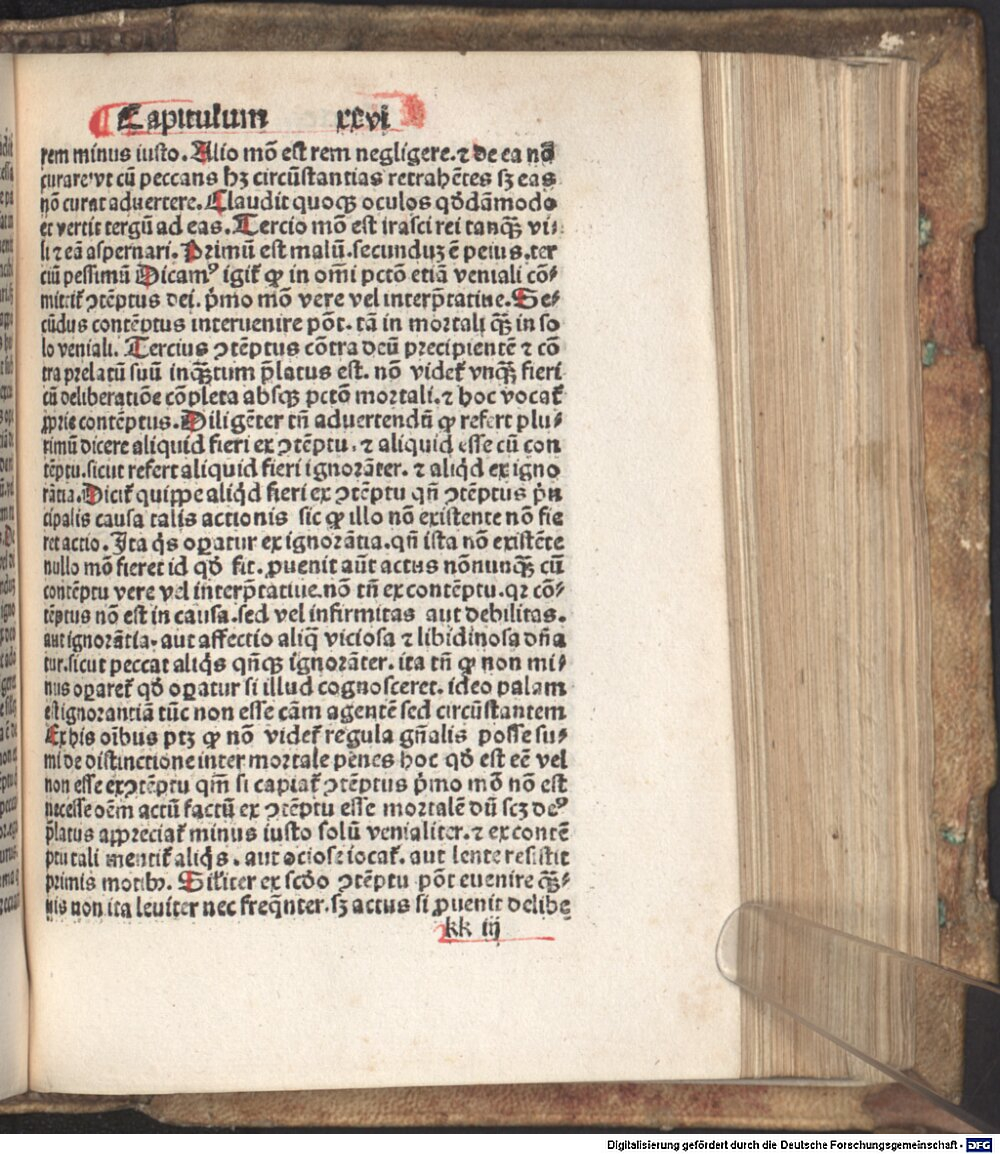 Capitulum xxvi
rem minus iusto. Alio mō est rem negligere. ⁊ de ea nō
curare vt cū peccans hꝫ circūstantias retrahētes sꝫ eas
nō curat aduertere. Claudit quoqꝫ oculos qďdāmodo
et vertit tergū ad eas. Tercio mō est irasci rei tanqꝫ̄ vi⸗
li ⁊ eā aspernari. Primū est malū. secunduꝫ ē peius. ter
ciū pessimū Dicamꝰ igit̄ ꝙ in om̄i pctō etiā veniali cō⸗
mittit̄ ꝯtēptus dei. p̄mo mō vere vel interp̄tatiue. Se⸗
cūdus contēptus interuenire pōt. tā in mortali qꝫ̄ in so
lo veniali. Tercius ꝯtēptus cōtra deū precipientē ⁊ cō
tra prelatū suū inqꝫ̄tum p̄latus est. nō videt̄ vnqꝫ̄ fieri
cū deliberatiōe cōpleta absqꝫ pctō mortali. ⁊ hoc vocat̄
ꝓprie contēptus. Diligēter tn̄ aduertendū ꝙ refert plu⸗
rimū dicere aliquid fieri ex ꝯtēptu. ⁊ aliquid esse cū con
tēptu. sicut refert aliquid fieri ignorāter. ⁊ aliqd ex igno
rātia. Dicit̄ quippe aliqd fieri ex ꝯtēptu qn̄ ꝯtēptus p̄n
cipalis causa talis actionis sic ꝙ illo nō existente nō fie
ret actio. Ita qs oꝑatur ex ignorātia. qn̄ ista nō existēte
nullo mō fieret id qď fit. ꝓuenit aūt actus nōnunqꝫ̄ cū
contēptu vere vel interp̄tatiue. nō tn̄ ex contēptu. qꝛ cō⸗
tēptus nō est in causa. sed vel infirmitas aut debilitas.
aut ignorātia. aut affectio aliq̄ viciosa ⁊ libidinosa dn̄a
tur. sicut peccat aliqs qn̄qꝫ ignorāter. ita tn̄ ꝙ non mi⸗
nus oꝑaret̄ qď oꝑatur si illud cognosceret. ideo palam
est ignorantiā tūc non esse cām agentē sed circūstantem
Ex his oībus ptꝫ ꝙ nō videt̄ regula gn̄alis posse su⸗
mi de distinctione inter mortale penes hoc qď est eē vel
non esse ex ꝯtēptu qm̄ si capiat̄ ꝯtēptus p̄mo mō nō est
necesse oēm actū factū ex ꝯtēptu esse mortalē dū scꝫ deꝰ
p̄latus appreciat̄ minus iusto solū venialiter. ⁊ ex contē
ptu tali mentit̄ aliqs. aut ociose iocat̄. aut lente resistit
primis motibꝫ. Sil̄iter ex scďo ꝯtēptu pōt euenire qꝫ̄⸗
uis non ita leuiter nec freqn̄ter. sꝫ actus si ꝓuenit delibe
kk iij
Digitalisierung gefördert durch die Deutsche Forschungsgemeinschaft - DFG